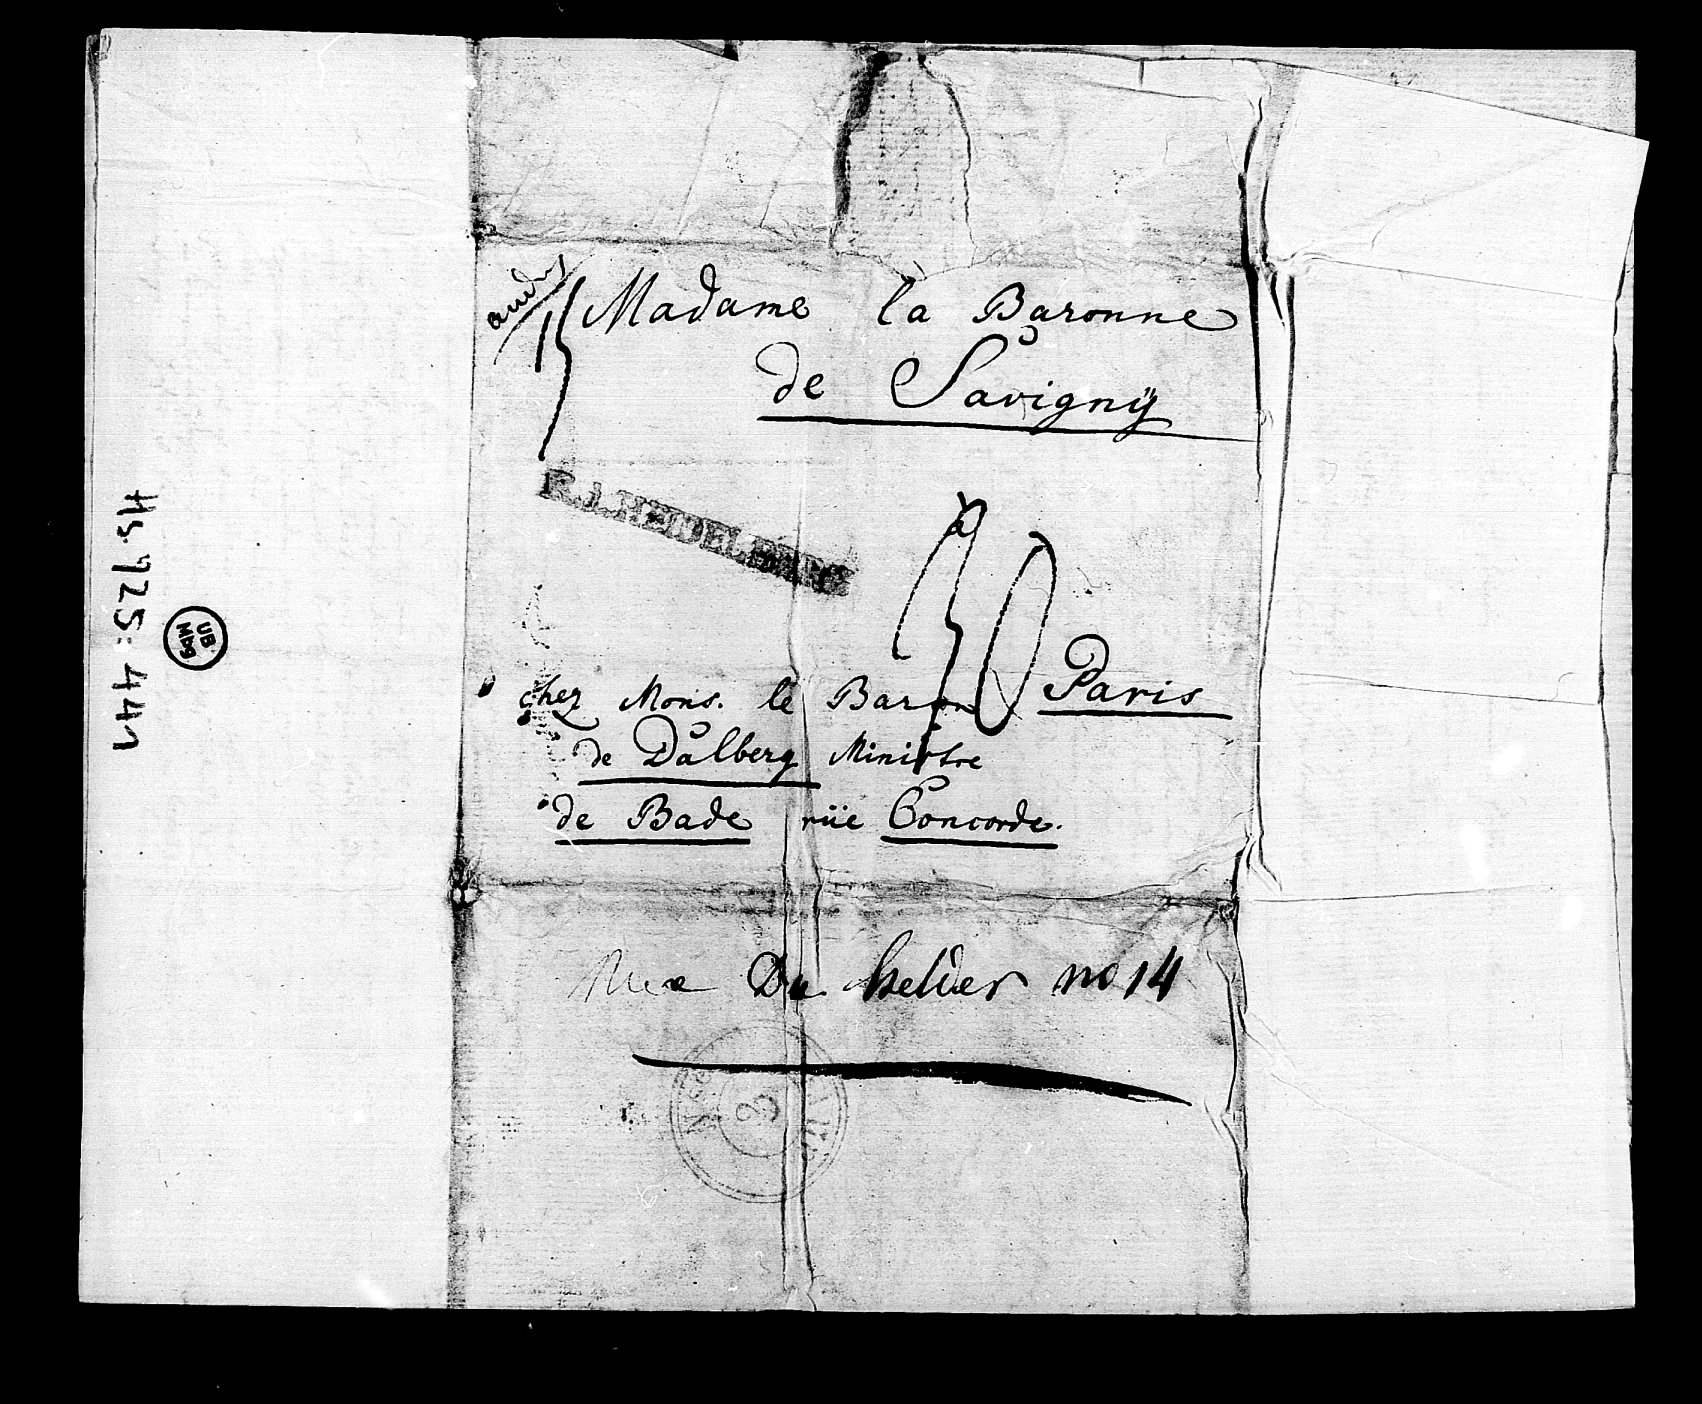 Madame la Baronne
de Savignÿ
R.i.HEIDELBERG
30
Paris
chez Mons. le Baron
de Dalberg Ministre
de Bade rüe Concorde.
Rue Du helder no 14
Hs. 725: 441
UB
Mbg